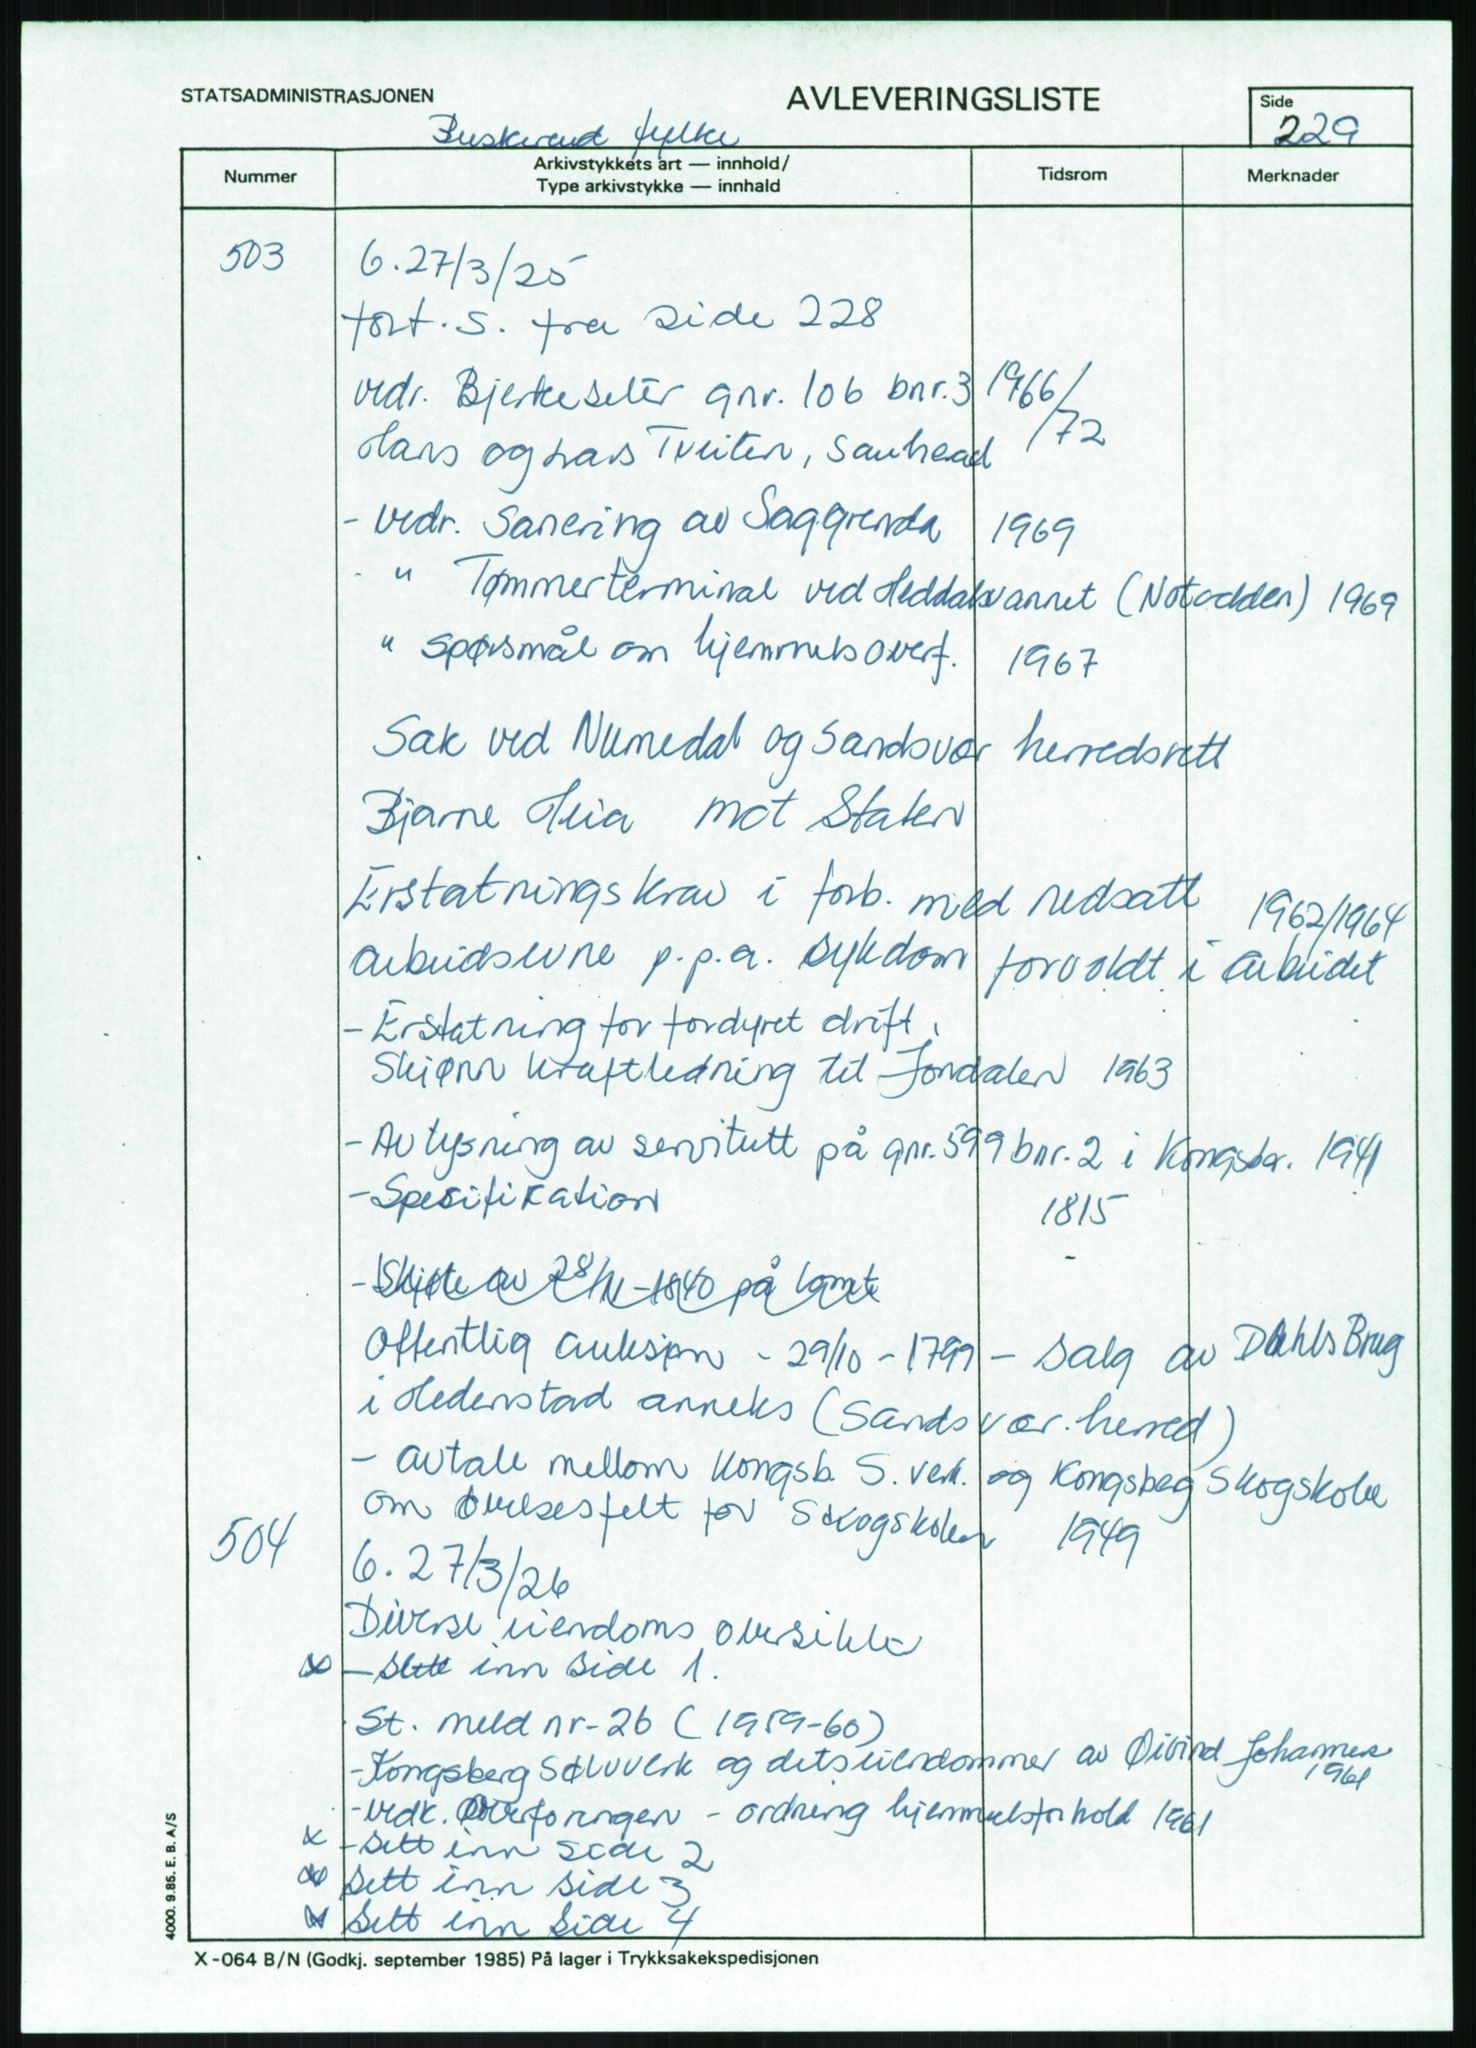 STATSADMINISTRASJONEN
AVLEVERINGSLISTE
Side
229
Buskerud fylke
Nummer
Arkivstykkets art — innhold/
Type arkivstykke — innhald
Tidsrom
Merknader
503
6.27/3/25
fort.s. fra side 228
vedr. Bjerkeseter gnr. 106 bnr. 3 1966/72
Hans og Lars Tveiten, Sauherad
- vedr. Sanering av Saggrenda 1969
- " Tømmerterminal ved Heddalsvannet (Notodden) 1969
" spørsmål om hjemmelsoverf. 1967
Sak ved Numedal og Sandsvær herredsrett
Bjarne Heia mot Staten
Erstatningskrav i forb. med nedsatt 1962/1964
arbeidsevne p.p.a. sykdom forvoldt i arbeidet
- Erstatning for fordyret drift,
Skjønn kraftledning til Jondalen 1963
- Avlysning av servitutt på gnr. 599 bnr. 2 i Kongsbr. 1941
- Spesifikation 1815
- Skjøte av 28/11-1840 på tomt
Offentlig auksjon - 29/10 - 1799 - salg av Dahls Brug
i Hedenstad anneks (Sandsvær. herred)
- avtale mellom Kongsb. S. verk. og Kongsberg Skogskole
om øvelsesfelt for Skogskolen 1949
504
6.27/3/26
Diverse eiendoms oversikter
x - Sett inn side 1.
St. meld nr - 26 (1959-60)
- Kongsberg Sølvverk og dets eiendommer av Øivind Johannes 1961
- vedk. Overføringen - ordning hjemmelsforhold 1961
x - Sett inn side 2
x Sett inn side 3
x Sett inn side 4
4000. 9.85. E. B. A/S
X-064 B/N (Godkj. september 1985) På lager i Trykksakekspedisjonen